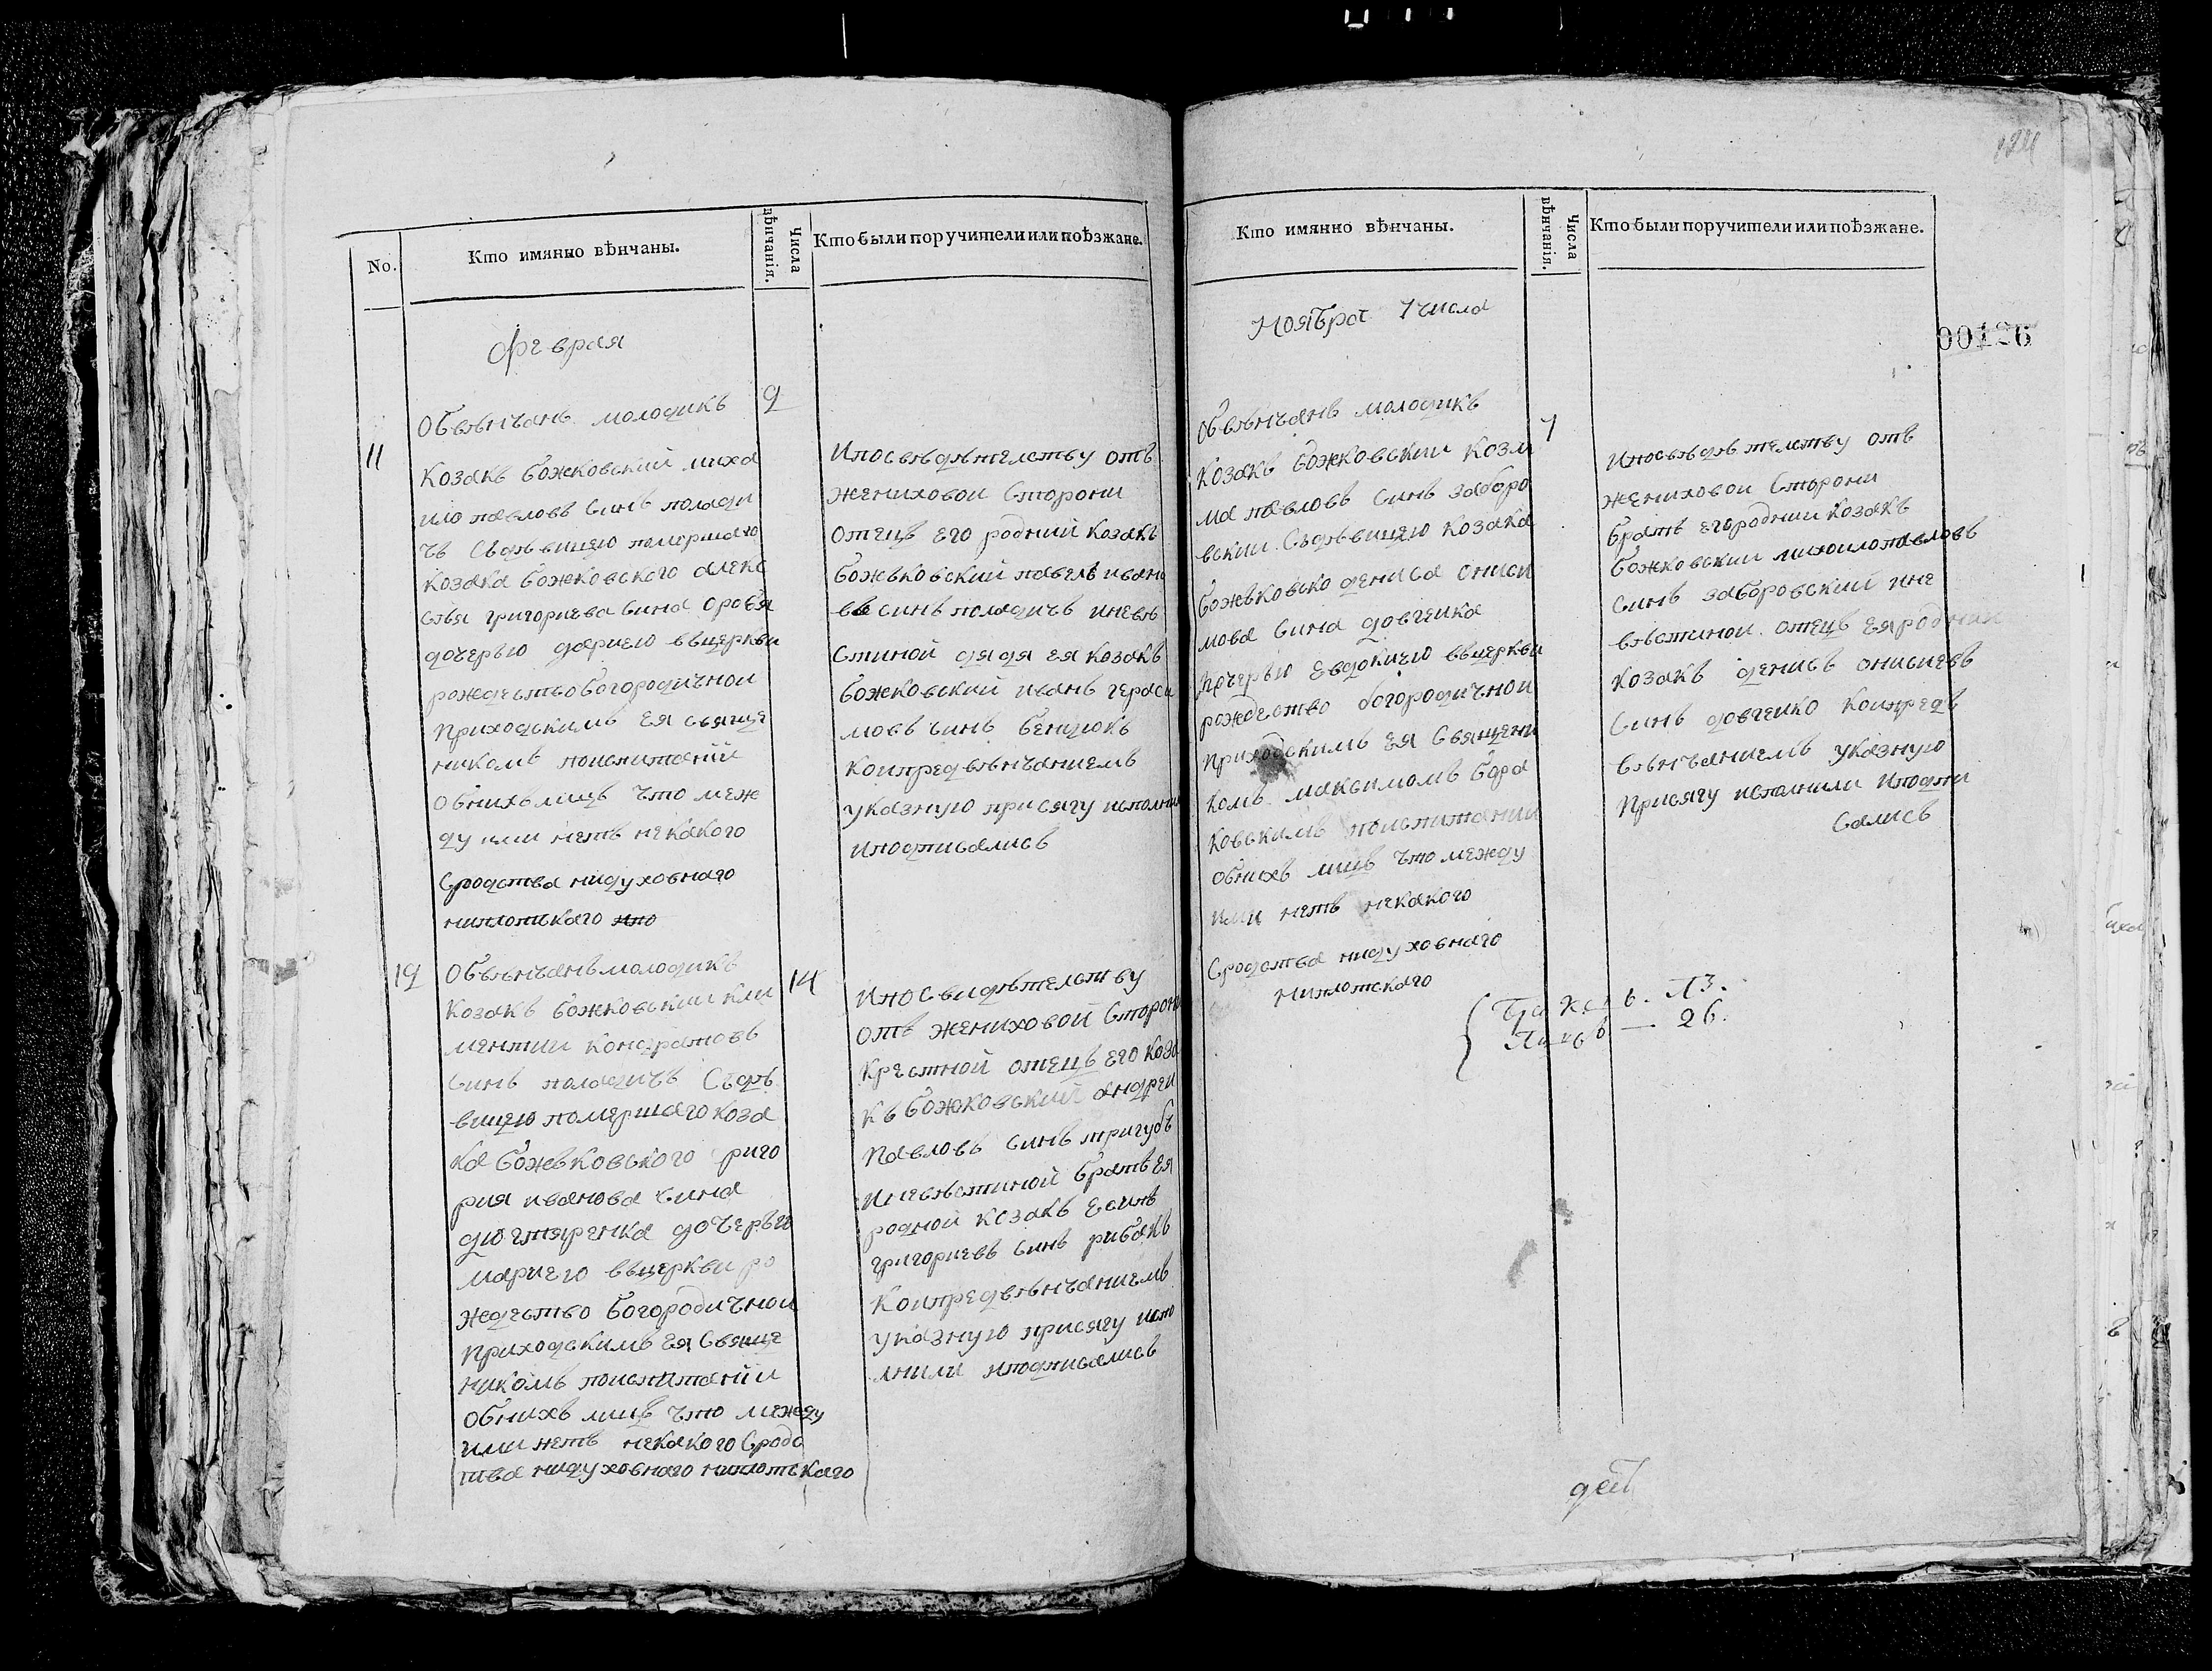 No.
Кто имянно вѣнчаны.
Числа вѣнчанія.
Кто были поручители или поѣзжане.
Февраля
Обвѣнчанъ молодикъ
9
11
козакъ божковский миха
ило павловъ синъ полади
чъ съдѣвицею помершаго
козака божковского алекс
григориева сина
дочерью дариею вьцеркви
рождество богородичной
приходскимъ ея свяще
никомъ поиспитаній
обнихъ лицъ что меж
ду ими нетъ некакого
сродства нидуховнаго
ниплотскаго ипо
Ипосвѣдѣтелству отъ
жениховои сторони
отецъ его родний козакъ
божьковский павелъ ивано
въ синъ поладичъ иневѣ
стиной дядя ея козакъ
божковский иванъ гераси
мовъ синъ бендюкъ
коипредвѣнчаниемъ
указную присягу исполни
иподписались
12
Обвѣнчанъ молодикъ
14
козакъ божковский кли
ментии кондратовъ
синъ поладичъ съдѣ
вицею помершаго коза
ка божьковского григо
рия иванова сина
дегтяренка дочерью
мариею вьцеркви ро
ждество богородичной
приходскимъ ея свяще
никомъ поиспитаній
обнихъ лицъ что между
ими нетъ некакого сродс
тва нидуховнаго ниплотскаго
Ипосвидѣтельству
отъ жениховой сторони
крестной отецъ его коза
къ божковский андреи
павловъ синъ тригубъ
иневѣстиной братъ ея
родной козакъ
григориевъ синъ рибакъ
коипредвѣнчаниемъ
указную присягу испо
лнили иподписались
Кто имянно вѣнчаны.
Числа вѣнчанія.
Кто были поручители или поѣзжане.
00126
Ноябра 7 числа
Обвѣнчанъ молодикъ
7
козакъ божковский козм
ма павловъ синъ заборо
вский съдѣвицею козака
божьковско дениса ониси
мова сина довгенка
дочерью евдокиею вьцеркви
рождество богородичной
приходскимъ ея священи
комъ максимомъ бара
ковскимъ поиспитании
обнихъ лицъ что между
ими нетъ некакого
сродства нидуховнаго
ниплотскаго
Ипосвѣдѣтелству отъ
жениховои сторони
братъ егородний козакъ
божковский михоило павловъ
синъ заборовский ине
вѣстинои отецъ ея родний
козакъ денисъ онисиевъ
синъ довгенко коипредъ
вѣнчаниемъ указную
присягу исполнили иподпи
сались
26.